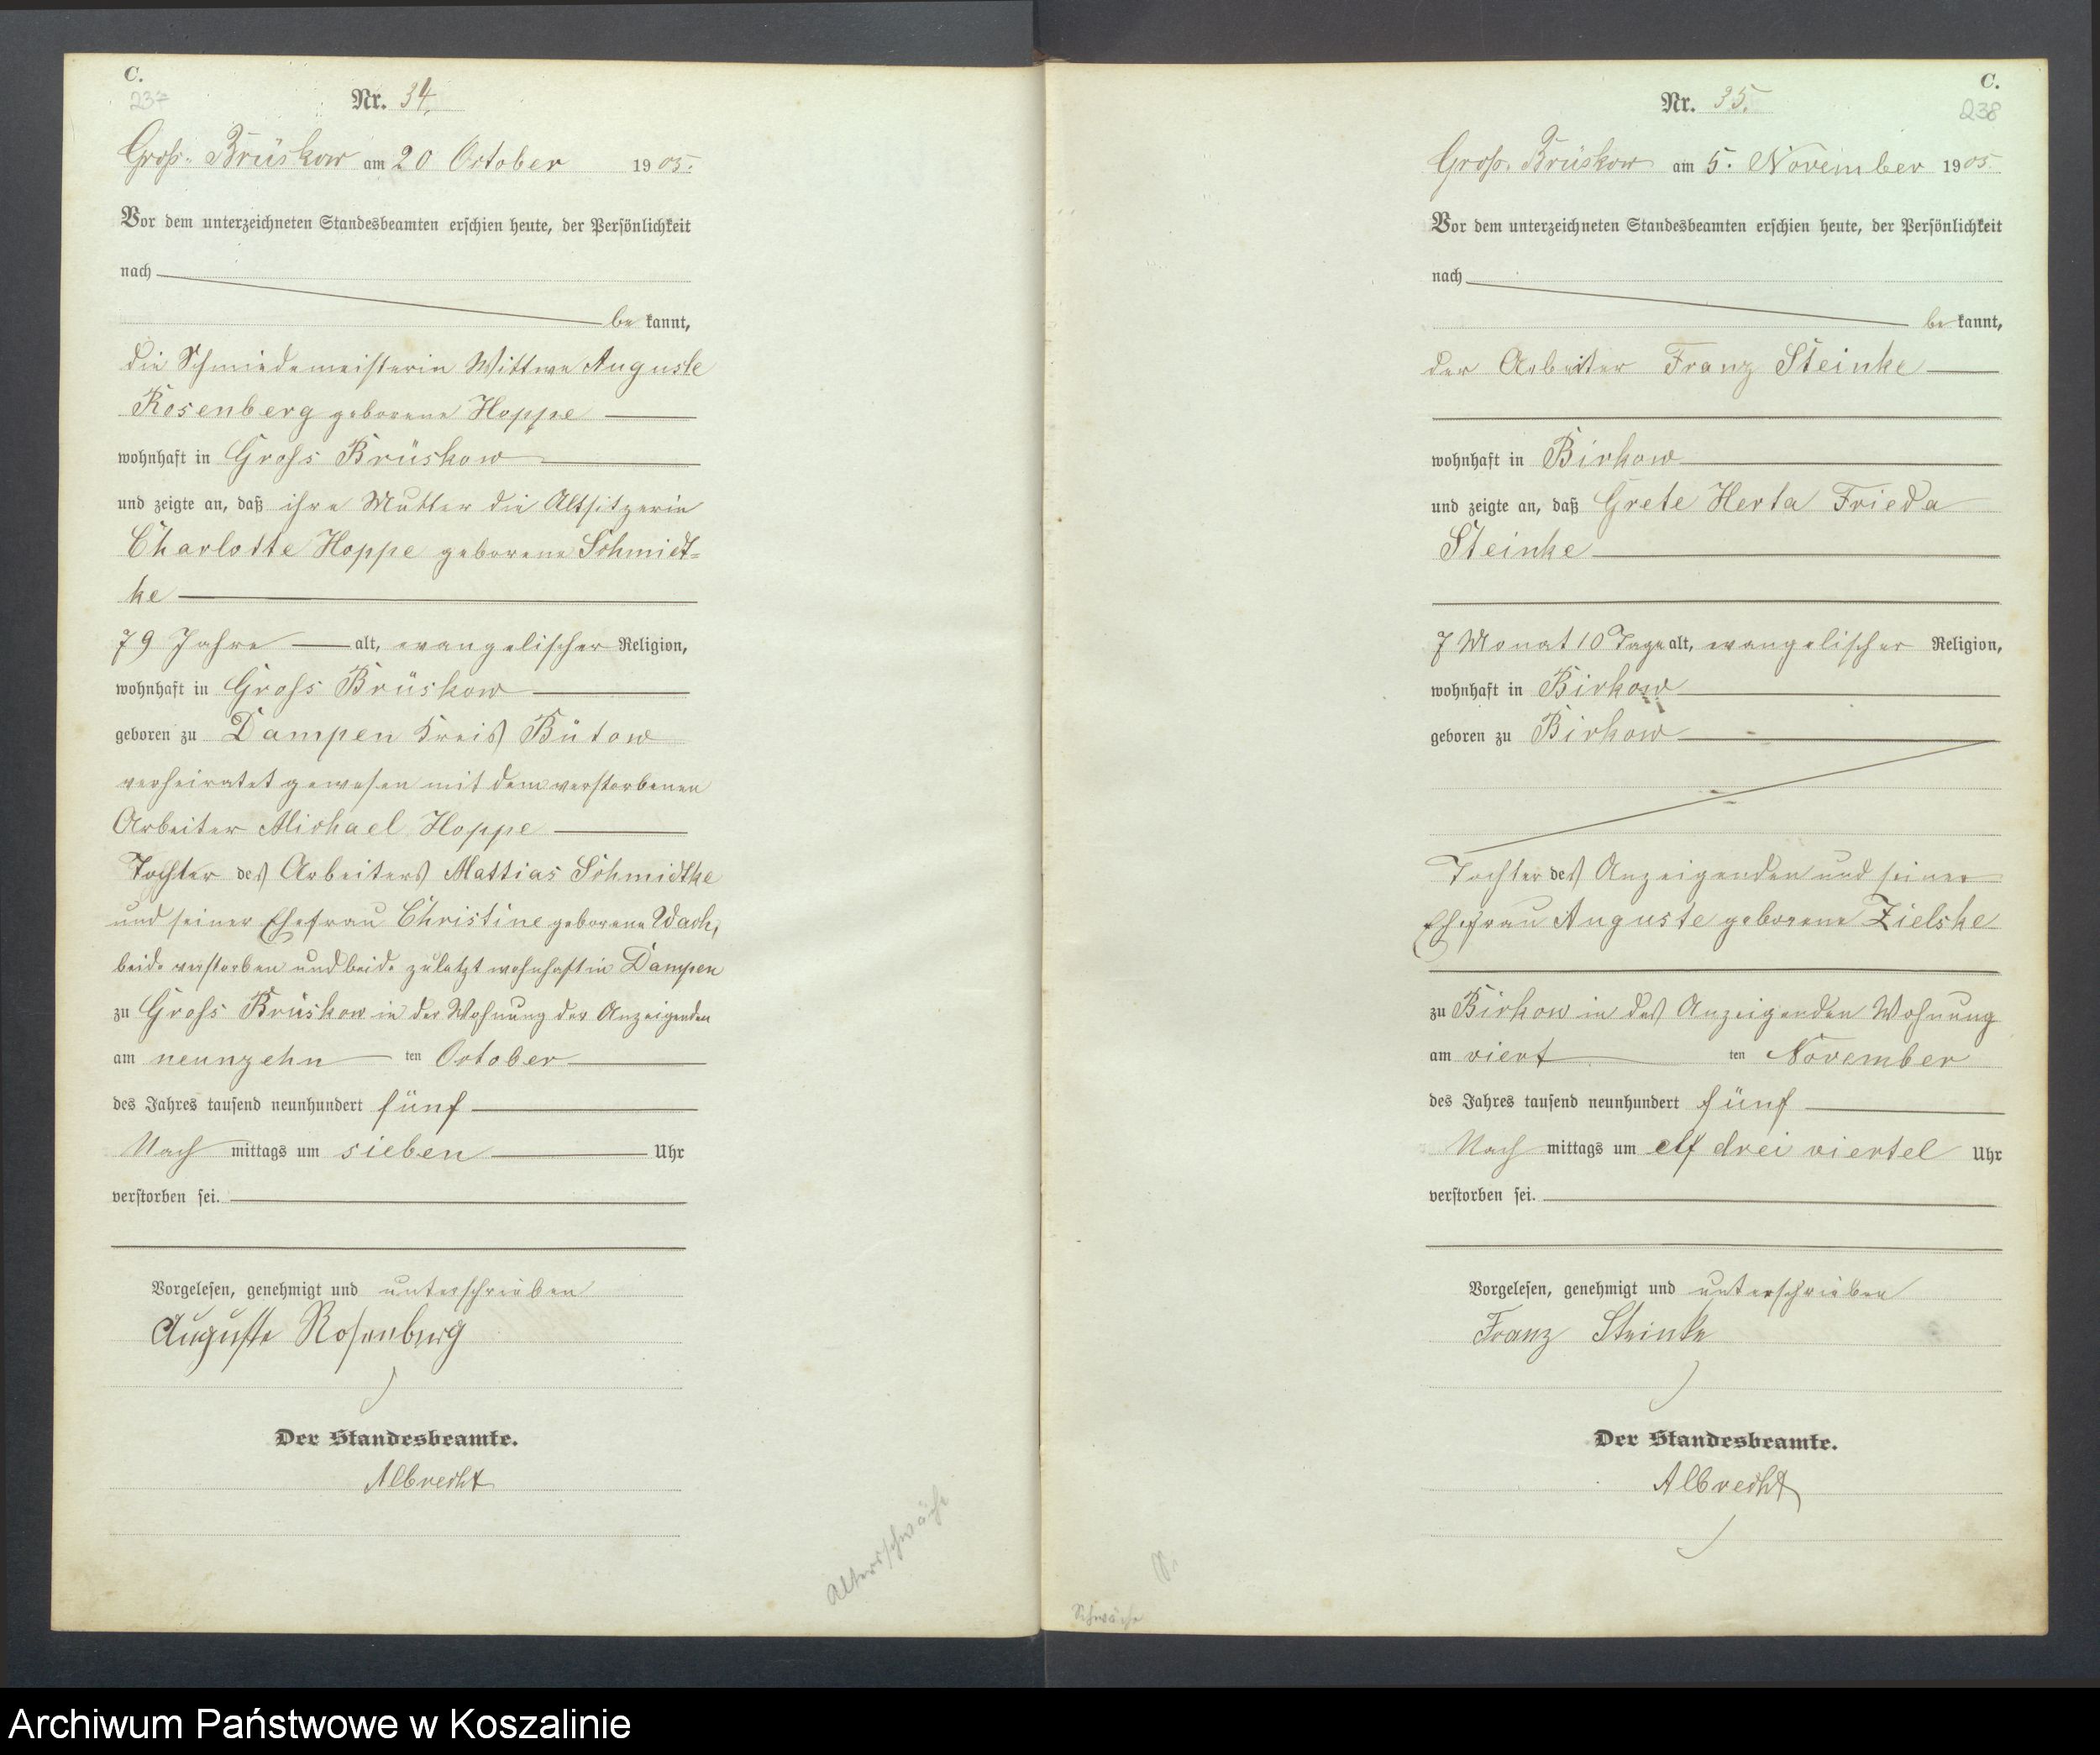 C.
237
Nr. 34.
Groß-Brüskow am 20 October 1905.
Vor dem unterzeichneten Standesbeamten erschien heute, der Persönlichkeit
nach
bekannt,
die Schmiedemeisterin Wittwe Auguste
Rosenberg geborene Hoppe
wohnhaft in Gross Brüskow
und zeigte an, daß ihre Mutter die Altsitzerin
Charlotte Hoppe geborene Schmidt=
ke
79 Jahre alt, evangelischer Religion,
wohnhaft in Gross Brüskow
geboren zu Dampen Kreis Bütow
verheiratet gewesen mit dem verstorbenen
Arbeiter Michael Hoppe
Tochter des Arbeiters Mattias Schmidtke
und seiner Ehefrau Christine geborene Wach,
beide verstorben und beide zuletzt wohnhaft in Dampen
zu Gross Brüskow in der Wohnung der Anzeigenden
am neunzehn ten October
des Jahres tausend neunhundert fünf
Nach mittags um sieben Uhr
verstorben sei.
Vorgelesen, genehmigt und unterschrieben
Auguste Rosenberg
Der Standesbeamte.
Albrecht
Altersschwäche
C.
238
Nr. 35.
Groß-Brüskow am 5. November 1905.
Vor dem unterzeichneten Standesbeamten erschien heute, der Persönlichkeit
nach
bekannt,
der Arbeiter Franz Steinke
wohnhaft in Birkow
und zeigte an, daß Grete Herta Frieda
Steinke
7 Monat 10 Tage alt, evangelischer Religion,
wohnhaft in Birkow
geboren zu Birkow
Tochter des Anzeigenden und seiner
Ehefrau Auguste geborene Zielske
zu Birkow in des Anzeigenden Wohnung
am viert ten November
des Jahres tausend neunhundert fünf
Nach mittags um elf drei viertel Uhr
verstorben sei.
Vorgelesen, genehmigt und unterschrieben
Franz Steinke
Der Standesbeamte.
Albrecht
Schwäche
Archiwum Państwowe w Koszalinie